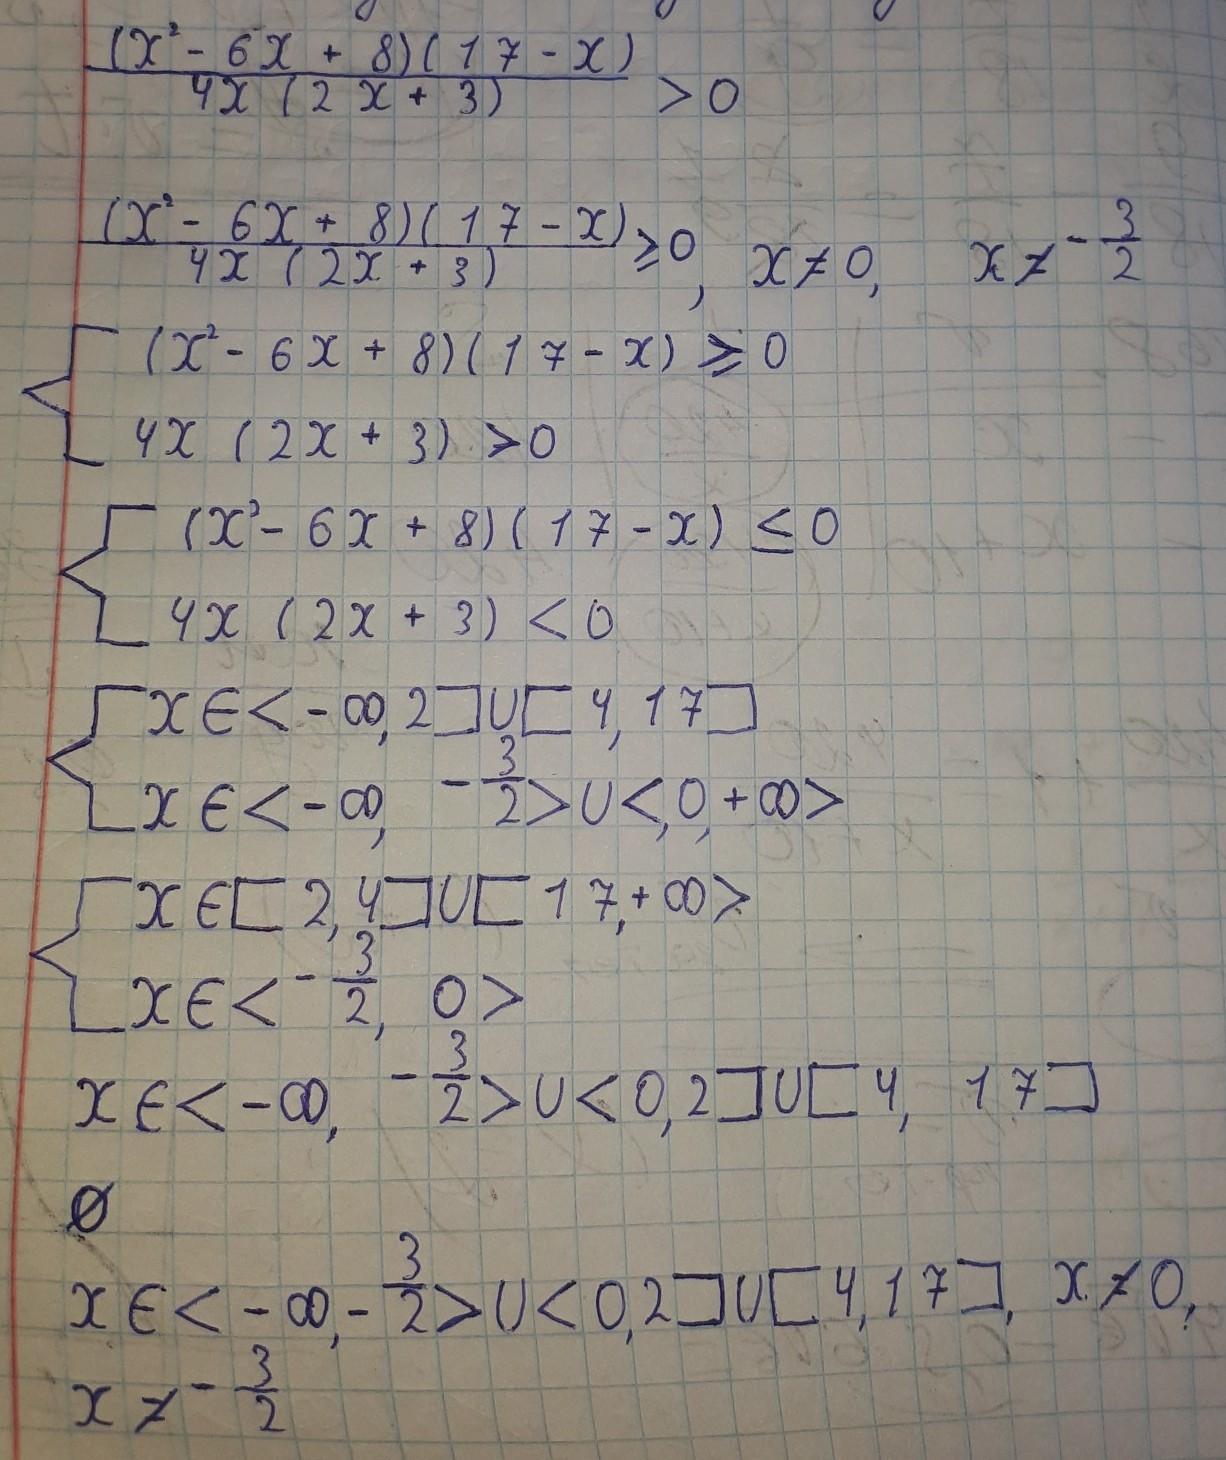 (x² - 6x + 8)(17 - x) / 4x (2x + 3) > 0
(x² - 6x + 8)(17 - x) / 4x (2x + 3) ≥ 0, x ≠ 0, x ≠ - 3/2
(x² - 6x + 8)(17 - x) ≥ 0
4x (2x + 3) > 0
(x² - 6x + 8)(17 - x) ≤ 0
4x (2x + 3) < 0
x ∈ < - ∞, 2] ∪ [4, 17]
x ∈ < - ∞, - 3/2 > ∪ <, 0, + ∞ >
x ∈ [2, 4] ∪ [17, + ∞ >
x ∈ < - 3/2, 0 >
x ∈ < - ∞, - 3/2 > ∪ < 0, 2] ∪ [4, 17]
∅
x ∈ < - ∞, - 3/2 > ∪ < 0, 2] ∪ [4, 17], x ≠ 0,
x ≠ - 3/2